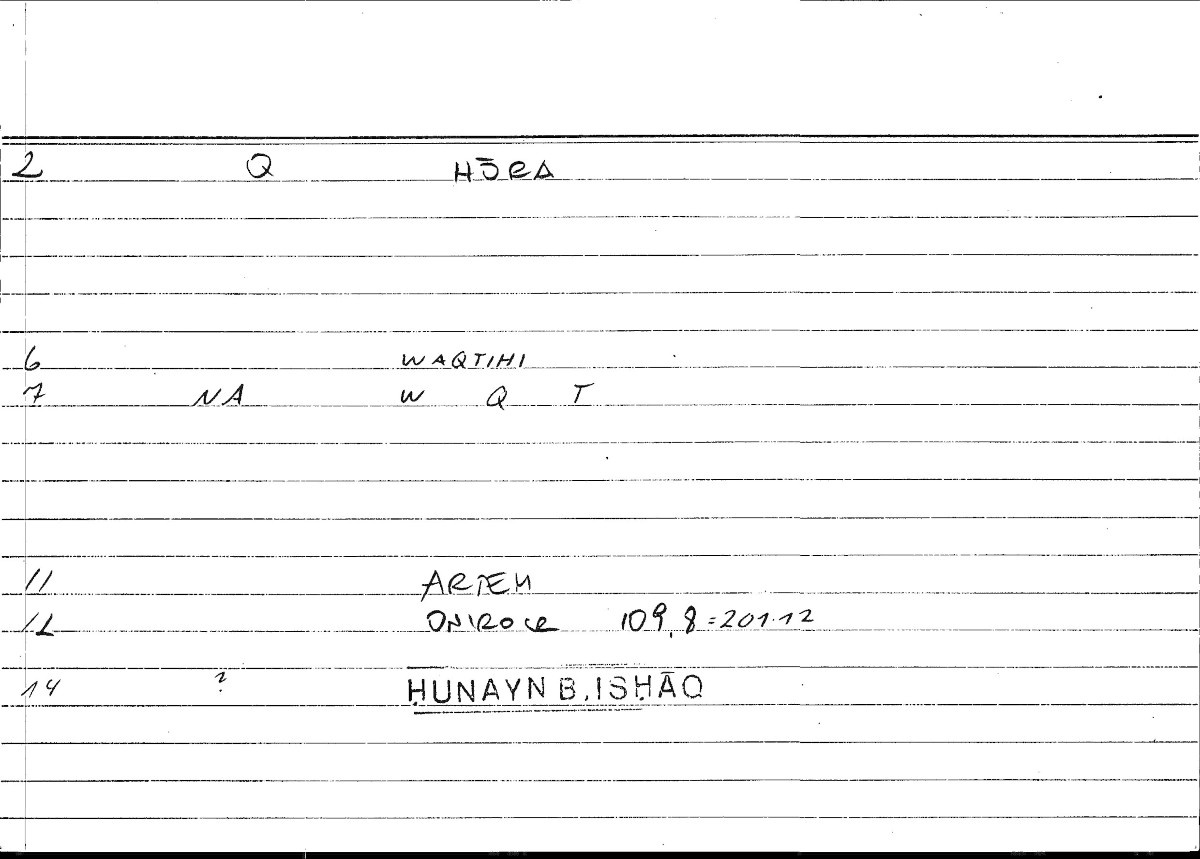 2 Q HŌRA
6 WAQTIHI
7 NA W Q T
11 ARTEM
12 ONIROCR 109,8=201.12
14 ? ḤUNAYN B. ISḤĀQ